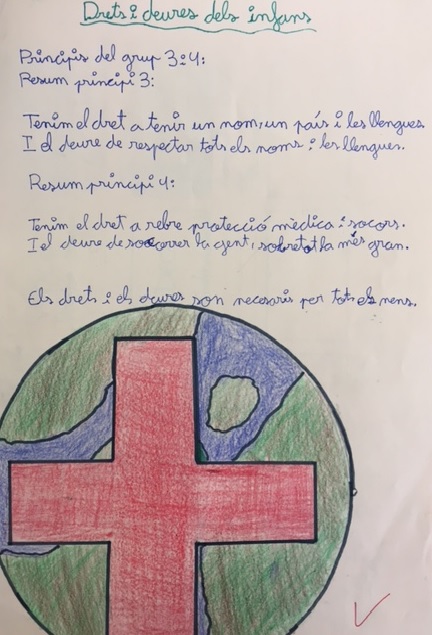 Drets i deures dels infans
Principis del grup 3 i 4:
Resum principi 3:
Tenim el dret a tenir un nom, un país i les llengues.
I el deure de respectar tots els noms i les llengues.
Resum principi 4:
Tenim el dret a rebre protecció mèdica i socors.
I el deure de socorrer la gent, sobretot la més gran.
Els drets i els deures son necesaris per tots els nens.